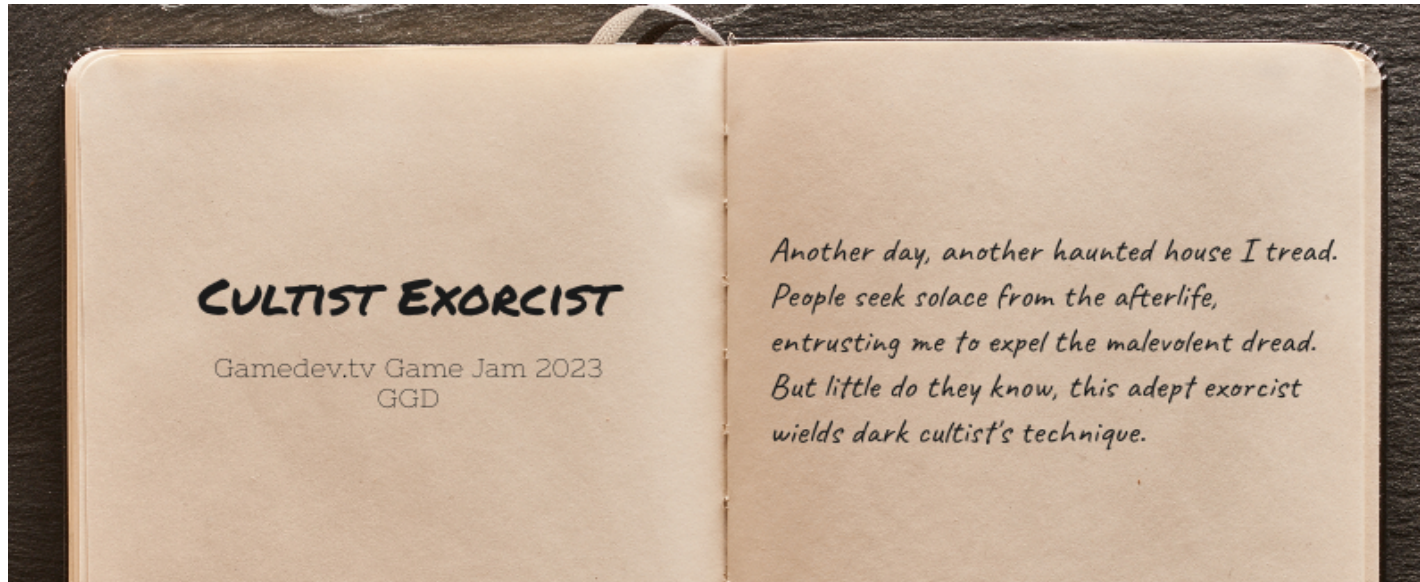 Cultist Exorcist
Gamedev.tv Game Jam 2023
GGD
Another day, another haunted house I tread.
People seek solace from the afterlife,
entrusting me to expel the malevolent dread.
But little do they know, this adept exorcist
wields dark cultist's technique.